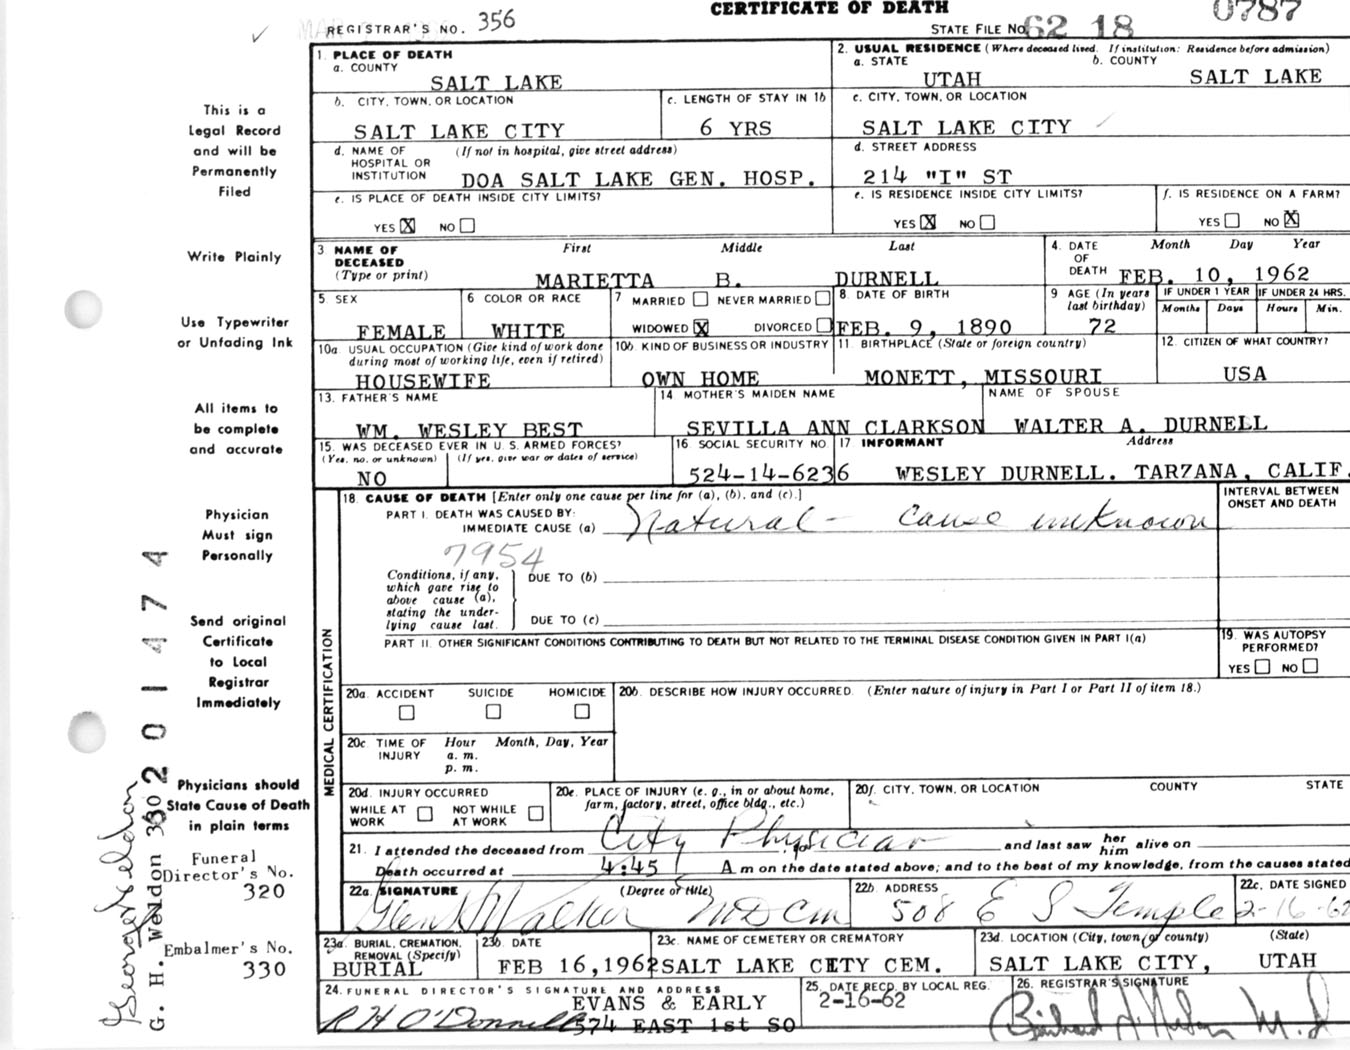 CERTIFICATE OF DEATH
0787
REGISTRAR'S NO. 356
STATE FILE NO. 62 18
1. PLACE OF DEATH
a. COUNTY
SALT LAKE
2. USUAL RESIDENCE (Where deceased lived. If institution: Residence before admission)
a. STATE b. COUNTY
UTAH SALT LAKE
b. CITY, TOWN, OR LOCATION
SALT LAKE CITY
c. LENGTH OF STAY IN 1b
6 YRS
c. CITY, TOWN, OR LOCATION
SALT LAKE CITY
d. NAME OF HOSPITAL OR INSTITUTION (If not in hospital, give street address)
DOA SALT LAKE GEN. HOSP.
d. STREET ADDRESS
214 "I" ST
e. IS PLACE OF DEATH INSIDE CITY LIMITS?
YES X NO
e. IS RESIDENCE INSIDE CITY LIMITS?
YES X NO
f. IS RESIDENCE ON A FARM?
YES NO X
3 NAME OF DECEASED (Type or print)
First Middle Last
MARIETTA B. DURNELL
4. DATE OF DEATH Month Day Year
FEB. 10, 1962
5. SEX
FEMALE
6 COLOR OR RACE
WHITE
7 MARRIED NEVER MARRIED
WIDOWED X DIVORCED
8. DATE OF BIRTH
FEB. 9, 1890
9 AGE (In years last birthday)
72
IF UNDER 1 YEAR
Months Days
IF UNDER 24 HRS.
Hours Min.
10a. USUAL OCCUPATION (Give kind of work done during most of working life, even if retired)
HOUSEWIFE
10b. KIND OF BUSINESS OR INDUSTRY
OWN HOME
11 BIRTHPLACE (State or foreign country)
MONETT, MISSOURI
12. CITIZEN OF WHAT COUNTRY?
USA
13. FATHER'S NAME
WM. WESLEY BEST
14 MOTHER'S MAIDEN NAME
SEVILLA ANN CLARKSON
NAME OF SPOUSE
WALTER A. DURNELL
15. WAS DECEASED EVER IN U.S. ARMED FORCES?
(Yes, no, or unknown) (If yes, give war or dates of service)
NO
16 SOCIAL SECURITY NO.
524-14-6236
17 INFORMANT Address
WESLEY DURNELL. TARZANA, CALIF.
18. CAUSE OF DEATH [Enter only one cause per line for (a), (b), and (c).]
INTERVAL BETWEEN ONSET AND DEATH
PART I. DEATH WAS CAUSED BY:
IMMEDIATE CAUSE (a) Natural - cause unknown
7954
Conditions, if any, which gave rise to above cause (a), stating the underlying cause last.
DUE TO (b)
DUE TO (c)
PART II. OTHER SIGNIFICANT CONDITIONS CONTRIBUTING TO DEATH BUT NOT RELATED TO THE TERMINAL DISEASE CONDITION GIVEN IN PART I(a)
19. WAS AUTOPSY PERFORMED?
YES NO
MEDICAL CERTIFICATION
20a. ACCIDENT SUICIDE HOMICIDE
20b. DESCRIBE HOW INJURY OCCURRED. (Enter nature of injury in Part I or Part II of item 18.)
20c. TIME OF INJURY Hour Month, Day, Year
a. m.
p. m.
20d. INJURY OCCURRED
WHILE AT WORK NOT WHILE AT WORK
20e. PLACE OF INJURY (e. g., in or about home, farm, factory, street, office bldg., etc.)
20f. CITY, TOWN, OR LOCATION COUNTY STATE
21. I attended the deceased from City Physician to and last saw her him alive on
Death occurred at 4:45 A m on the date stated above; and to the best of my knowledge, from the causes stated
22a. SIGNATURE (Degree or title)
Glen Walker MD CM
22b. ADDRESS
508 E S Temple
22c. DATE SIGNED
2-16-62
23a. BURIAL, CREMATION, REMOVAL (Specify)
BURIAL
23b. DATE
FEB 16, 1962
23c. NAME OF CEMETERY OR CREMATORY
SALT LAKE CITY CEM.
23d. LOCATION (City, town, or county) (State)
SALT LAKE CITY, UTAH
24. FUNERAL DIRECTOR'S SIGNATURE AND ADDRESS
EVANS & EARLY
R H O'Donnell 574 EAST 1st SO
25. DATE RECD. BY LOCAL REG.
2-16-62
26. REGISTRAR'S SIGNATURE
This is a
Legal Record
and will be
Permanently
Filed
Write Plainly
Use Typewriter
or Unfading Ink
All items to
be complete
and accurate
Physician
Must sign
Personally
Send original
Certificate
to Local
Registrar
Immediately
Physicians should
State Cause of Death
in plain terms
Funeral
Director's No.
320
Embalmer's No.
330
George Weldon
G. H. Weldon 330
201474